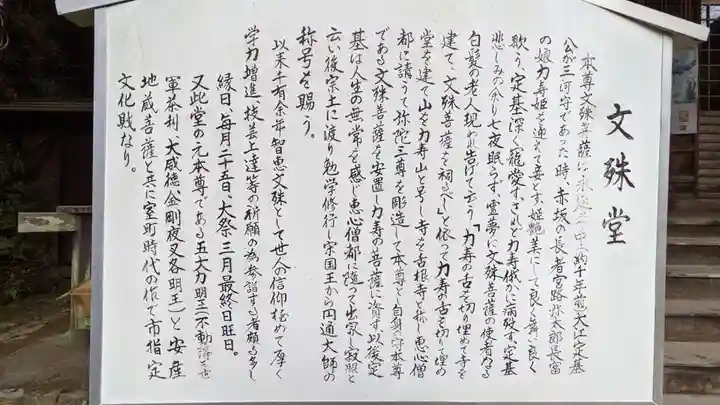 文殊堂
本尊文殊菩薩は永延二年中(約千年前)大江定基
公が三河守であった時、赤坂の長者宮路弥太郎長富
の娘力寿姫を迎えて妾とす、姫艶美にして良く舞い良く
歌う、定基深く寵愛すされど力寿俄かに病歿す、定基
悲しみの余り七夜眠らず、霊夢に文殊菩薩の使者なる
白髪の老人現われ告げて云う「力寿の舌を切り埋めて寺を
建て、文殊菩薩を祠るべし」と依って力寿の舌を切り埋め
堂を建て山を力寿山と号し寺を舌根寺と称し恵心僧
都に請うて弥陀三尊を彫造して本尊とし自身の守本尊
である文殊菩薩を安置し力寿の菩薩に資す、以後定
基は人生の無常を感じ恵心僧都に随って出家し寂照と
云い後宋土に渡り勉学修行し宋国王から円通大師の
称号を賜う。
以来千有余年智恵文殊として世人の信仰極めて厚く
学力増進、技芸上達等の祈願の為参詣する者頗る多し
縁日、毎月二十五日、大祭三月最終日旺日。
又此堂の元本尊である五大力明王(不動 降三世
軍荼利、大威徳金剛夜叉各明王)と安産
地蔵菩薩と共に室町時代の作で市指定
文化財なり。